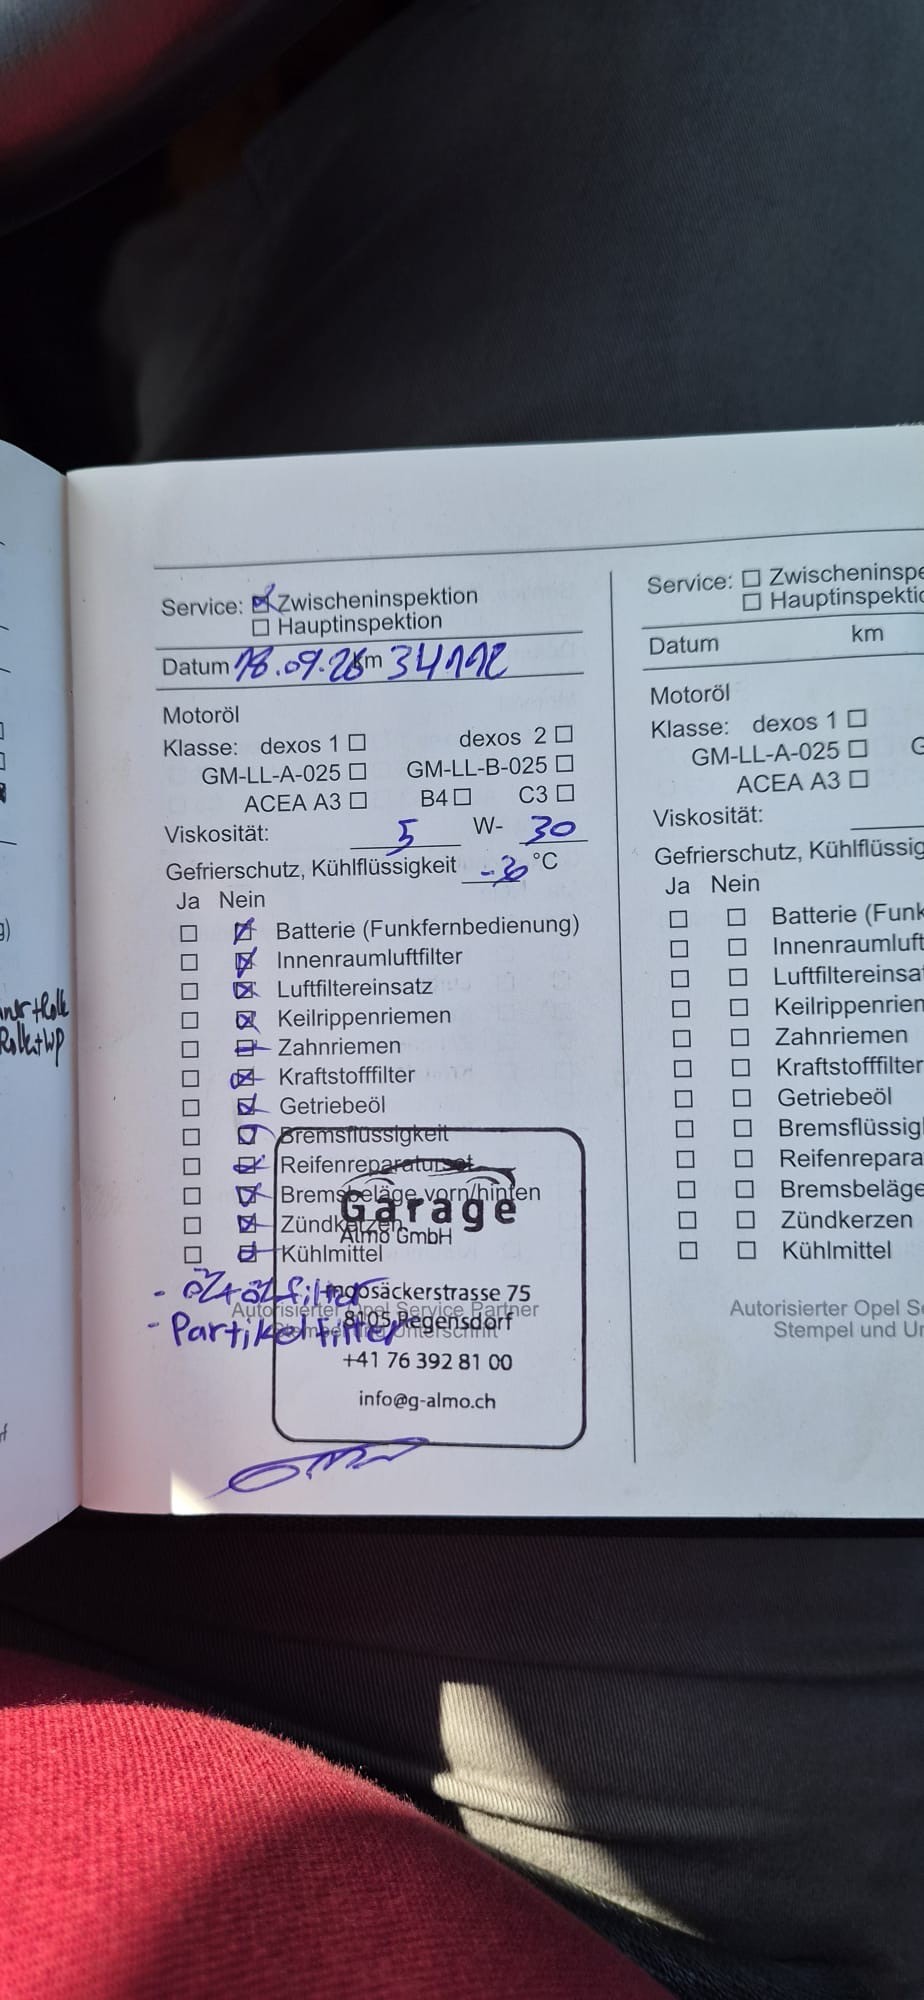 Service: Zwischeninspektion
Hauptinspektion
Datum 18.09.26 km 34112
Motoröl
Klasse: dexos 1 dexos 2
GM-LL-A-025 GM-LL-B-025
ACEA A3 B4 C3
Viskosität: 5 W- 30
Gefrierschutz, Kühlflüssigkeit -30 °C
Ja Nein
Batterie (Funkfernbedienung)
Innenraumluftfilter
Luftfiltereinsatz
Keilrippenriemen
Zahnriemen
Kraftstofffilter
Getriebeöl
Bremsflüssigkeit
Reifenreparaturset
Bremsbeläge vorn/hinten
Zündkerzen
Kühlmittel
Garage
Almo GmbH
75
8105 Regensdorf
+41 76 392 81 00
info@g-almo.ch
Autorisierter Opel Service Partner
Stempel und Unterschrift
- Partikelfilter
Service: Zwischeninspe
Hauptinspektio
Datum km
Motoröl
Klasse: dexos 1
GM-LL-A-025 G
ACEA A3
Viskosität:
Gefrierschutz, Kühlflüssig
Ja Nein
Batterie (Funk
Innenraumluft
Luftfiltereinsa
Keilrippenriem
Zahnriemen
Kraftstofffilter
Getriebeöl
Bremsflüssig
Reifenrepara
Bremsbeläge
Zündkerzen
Kühlmittel
Autorisierter Opel Se
Stempel und Un